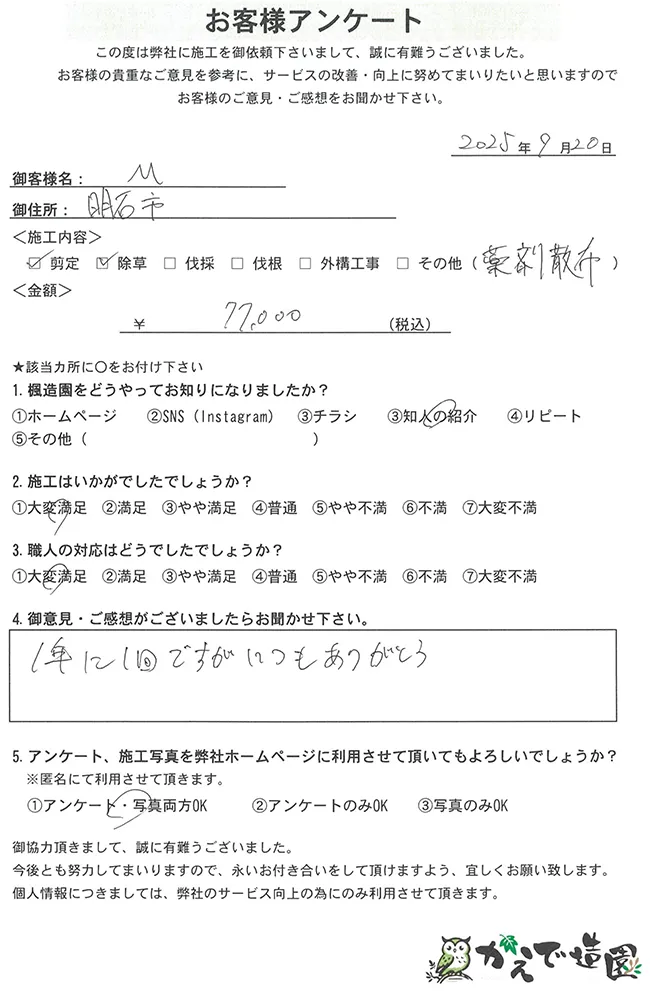 お客様アンケート
この度は弊社に施工を御依頼下さいまして、誠に有難うございました。
お客様の貴重なご意見を参考に、サービスの改善・向上に努めてまいりたいと思いますので
お客様のご意見・ご感想をお聞かせ下さい。
2025年 9月20日
御客様名： M
御住所： 明石市
＜施工内容＞
☑ 剪定 ☑ 除草 □ 伐採 □ 伐根 □ 外構工事 □ その他（薬剤散布）
＜金額＞
￥ 77,000 （税込）
★該当カ所に〇をお付け下さい
1. 楓造園をどうやってお知りになりましたか？
①ホームページ ②SNS（Instagram） ③チラシ ③知人の紹介 ④リピート
⑤その他（ ）
2. 施工はいかがでしたでしょうか？
①大変満足 ②満足 ③やや満足 ④普通 ⑤やや不満 ⑥不満 ⑦大変不満
3. 職人の対応はどうでしたでしょうか？
①大変満足 ②満足 ③やや満足 ④普通 ⑤やや不満 ⑥不満 ⑦大変不満
4. 御意見・ご感想がございましたらお聞かせ下さい。
1年に1回ですがいつもありがとう
5. アンケート、施工写真を弊社ホームページに利用させて頂いてもよろしいでしょうか？
※匿名にて利用させて頂きます。
①アンケート・写真両方OK ②アンケートのみOK ③写真のみOK
御協力頂きまして、誠に有難うございました。
今後とも努力してまいりますので、永いお付き合いをして頂けますよう、宜しくお願い致します。
個人情報につきましては、弊社のサービス向上の為にのみ利用させて頂きます。
かえで造園